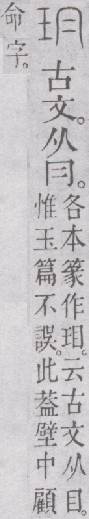 古文。从冃。
各本篆作。云古文从目。
惟玉篇不誤。此葢壁中顧
命字。